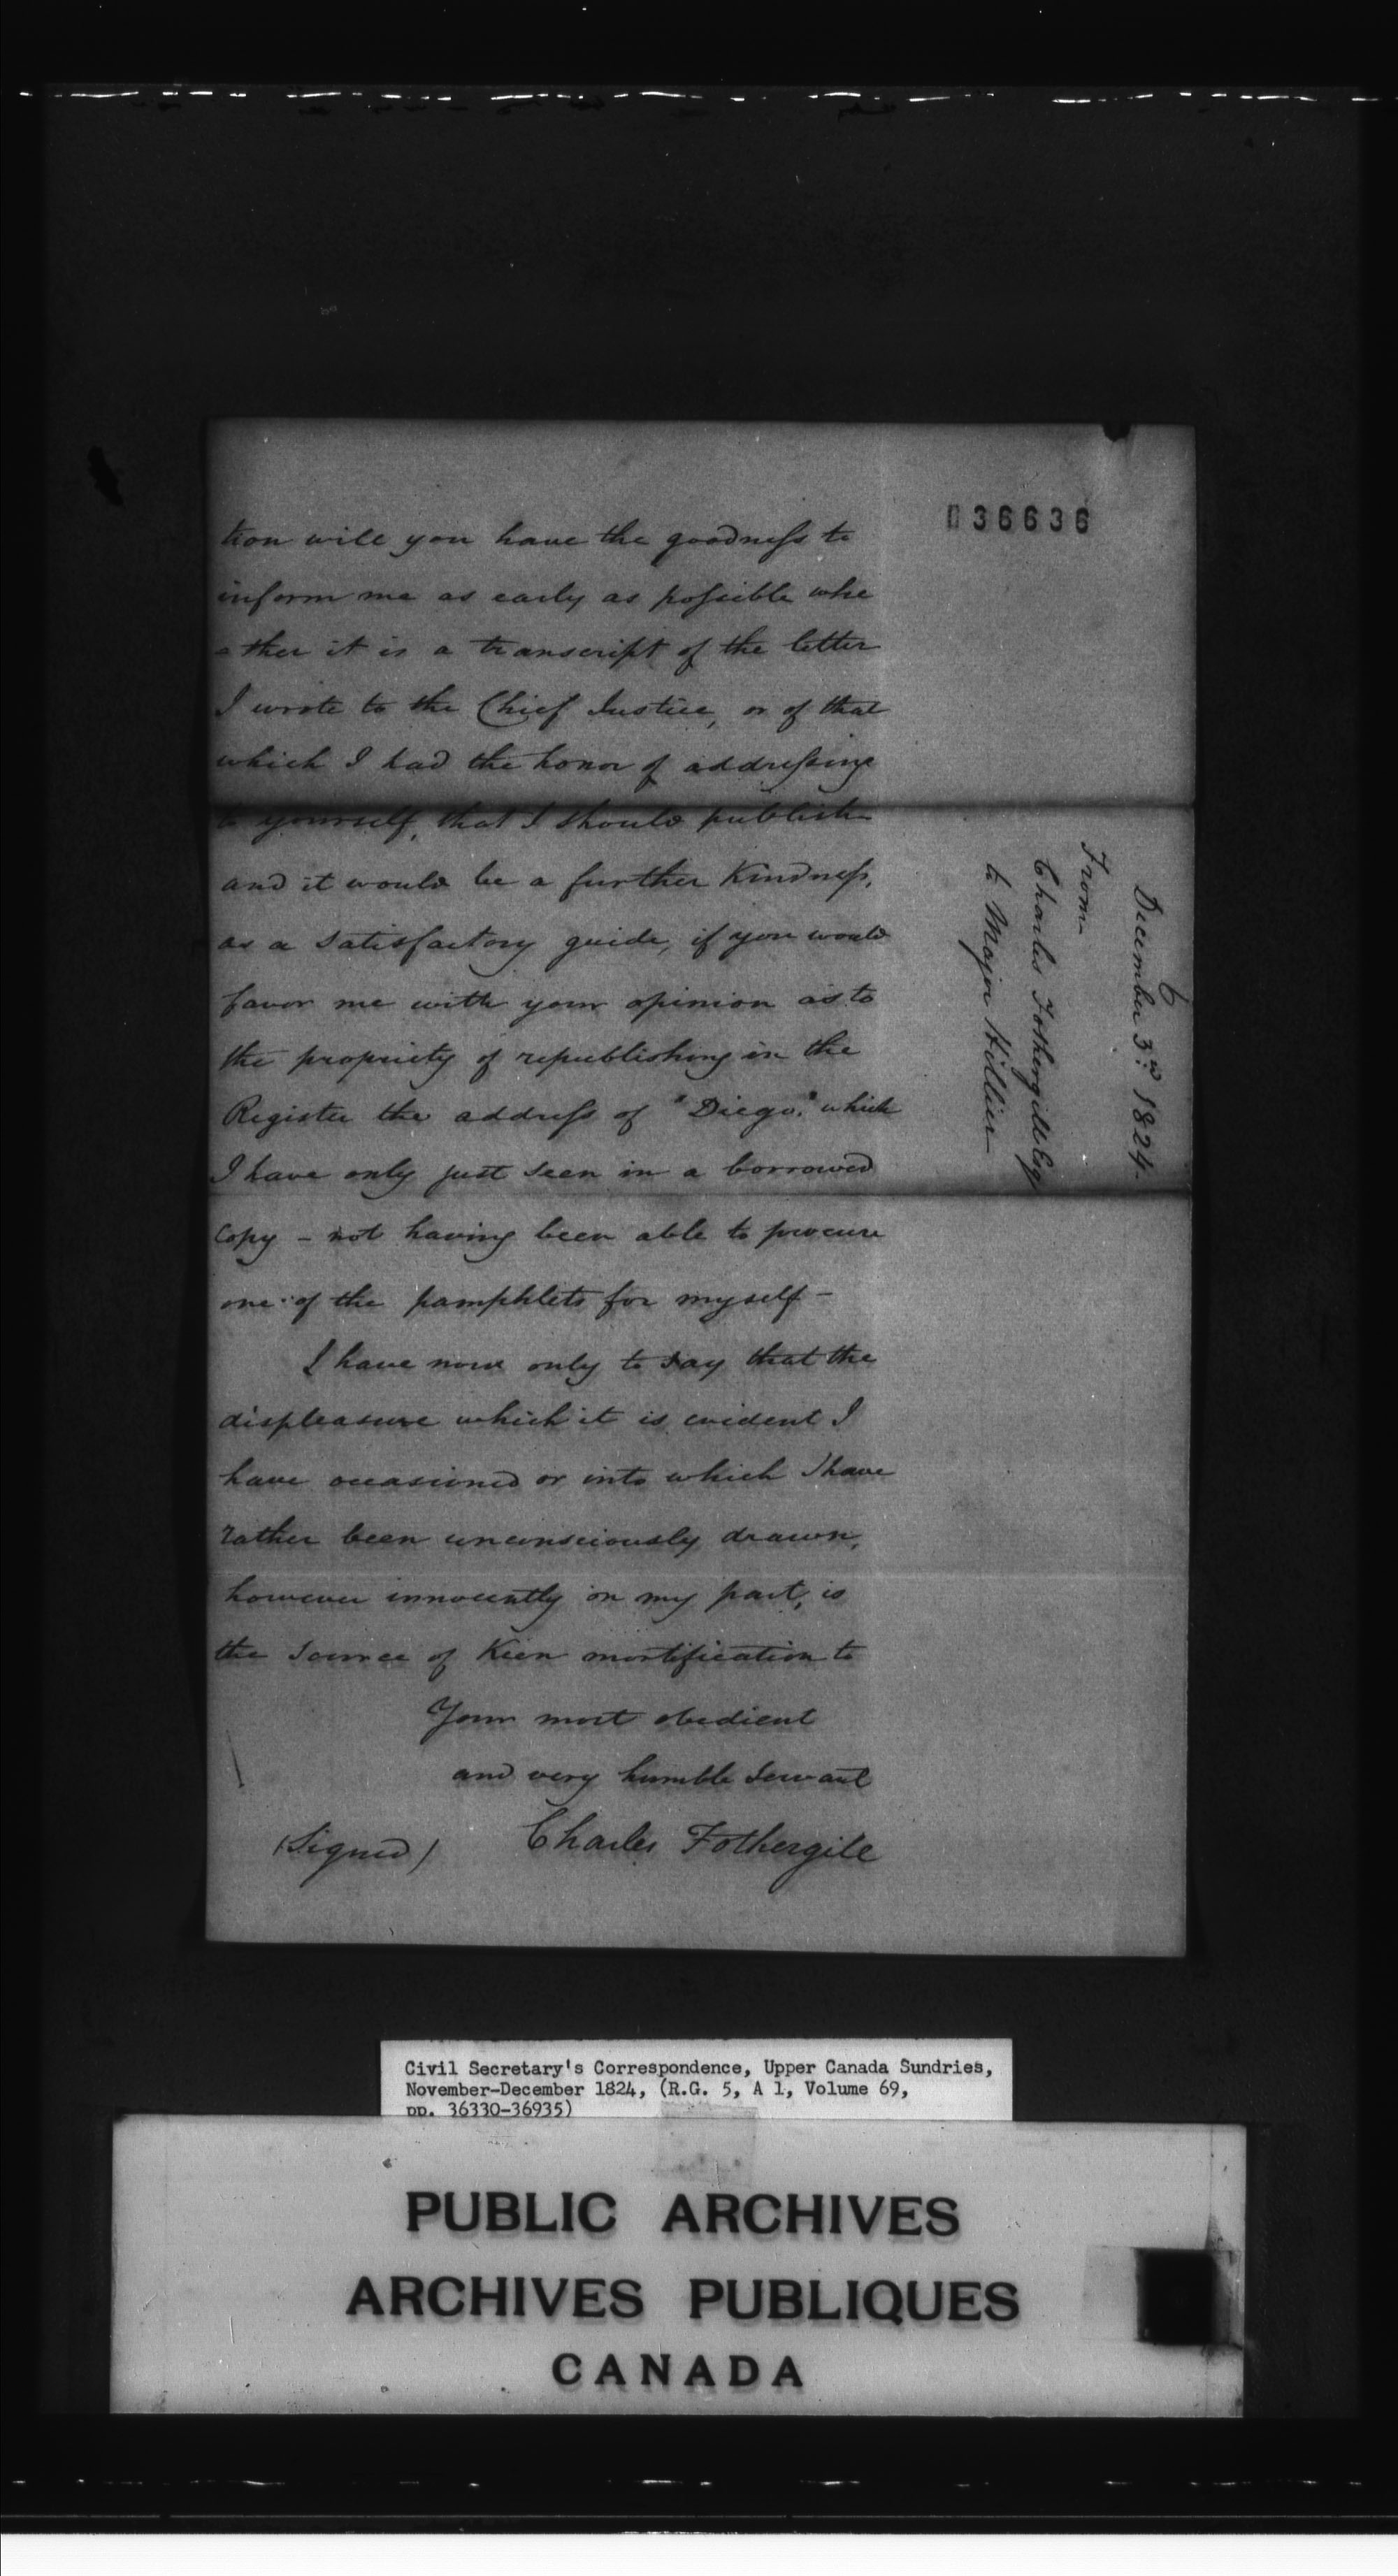 036636
tion will you have the goodness to
inform me as early as possible whe
-ther it is a transcript of the letter
I wrote to the Chief Justice, or of that
which I had the honor of addressing
to yourself, that I should publish
and it would be a further Kindness,
as a satisfactory guide, if you would
favor me with your opinion as to
the propriety of republishing in the
Register the address of "Diego." which
I have only just seen in a borrowed
Copy - not having been able to procure
one of the pamphlets for myself -
I have now only to say that the
displeasure which it is evident I
have occasioned or into which I have
rather been unconsciously drawn,
however innocently on my part, is
the source of Keen mortification to
Your most obedient
and very humble Servant
(Signed) Charles Fothergill
6
December 3rd 1824.
From
Charles Fothergill Esq
to Major Hillier
Civil Secretary's Correspondence, Upper Canada Sundries,
November-December 1824, (R.G. 5, A 1, Volume 69,
pp. 36330-36935)
PUBLIC ARCHIVES
ARCHIVES PUBLIQUES
CANADA